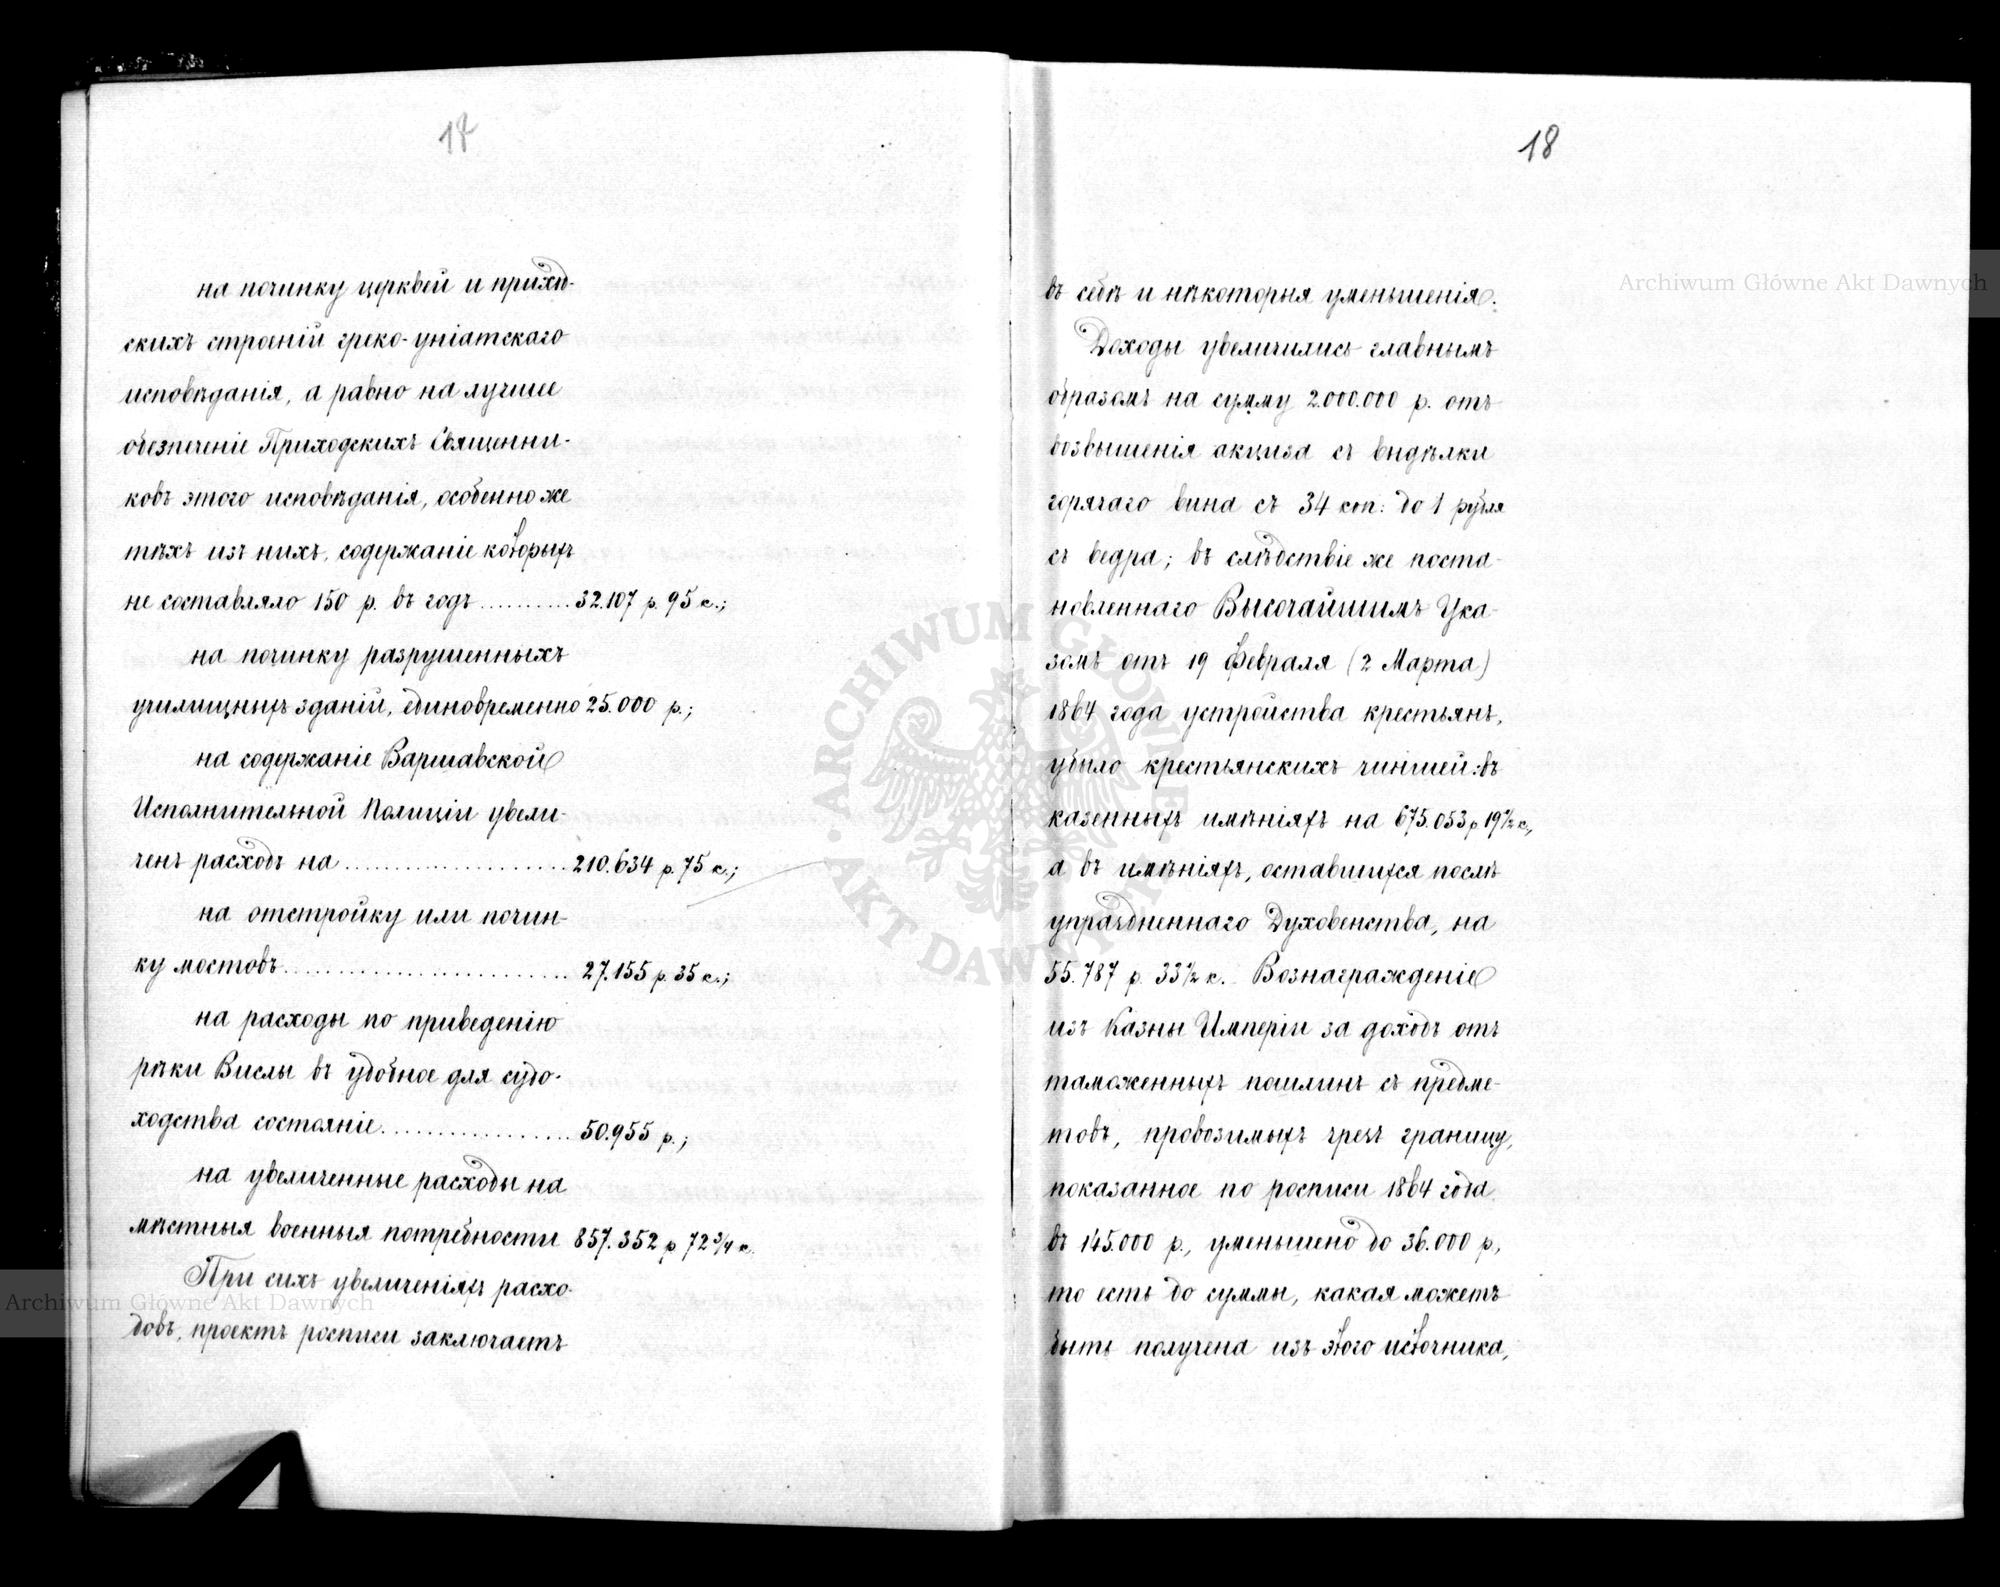 17
на починку церквей и приход-
скихъ строеній греко-уніатскаго
исповѣданія, а равно на лучшее
обезпеченіе Приходскихъ Священни-
ковъ этого исповѣданія, особенно же
тѣхъ изъ нихъ, содержаніе которыхъ
не составляло 150 р. въ годъ .......... 32.107 р. 95 к.;
на починку разрушенныхъ
училищныхъ зданій, единовременно 25.000 р.;
на содержаніе Варшавской
Исполнительной Полиціи увели-
ченъ расходъ на ..................... 210.634 р. 75 к.;
на отстройку или почин-
ку мостовъ ........................... 27.155 р. 35 к.;
на расходы по приведенію
рѣки Вислы въ удобное для судо-
ходства состояніе .................. 50.955 р.;
на увеличенные расходы на
мѣстныя военныя потребности 857.352 р 72 3/4 к.
При сихъ увеличеніяхъ расхо-
довъ, проектъ росписи заключаетъ
Archiwum Główne Akt Dawnych
18
въ себѣ и нѣкоторыя уменьшенія.
Доходы увеличились главнымъ
образомъ на сумму 2.000.000 р. отъ
возвышенія акциза съ выдѣлки
горячаго вина съ 34 коп: до 1 рубля
съ ведра; въ слѣдствіе же поста-
новленнаго Высочайшимъ Ука-
зомъ отъ 19 Февраля (2 Марта)
1864 года устройства крестьянъ,
убыло крестьянскихъ чиншей: въ
казенныхъ имѣніяхъ на 675.053 р 19 1/2 к.,
а въ имѣніяхъ, оставшихся послѣ
упраздненнаго Духовенства, на
55.787 р. 33 1/2 к. Вознагражденіе
изъ Казны Имперіи за доходъ отъ
таможенныхъ пошлинъ съ предме-
товъ, провозимыхъ чрезъ границу,
показанное по росписи 1864 года
въ 145.000 р., уменьшено до 36.000 р,
то есть до суммы, какая можетъ
быть получена изъ этого источника,
Archiwum Główne Akt Dawnych
ARCHIWUM GŁÓWNE
AKT DAWNYCH